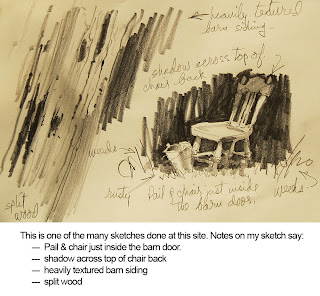 heavily textured
barn siding
shadow across top of
chair back
weeds
rusty
Pail & chair just inside
barn door.
weeds
split
wood
This is one of the many sketches done at this site. Notes on my sketch say:
--- Pail & chair just inside the barn door.
--- shadow across top of chair back
--- heavily textured barn siding
--- split wood